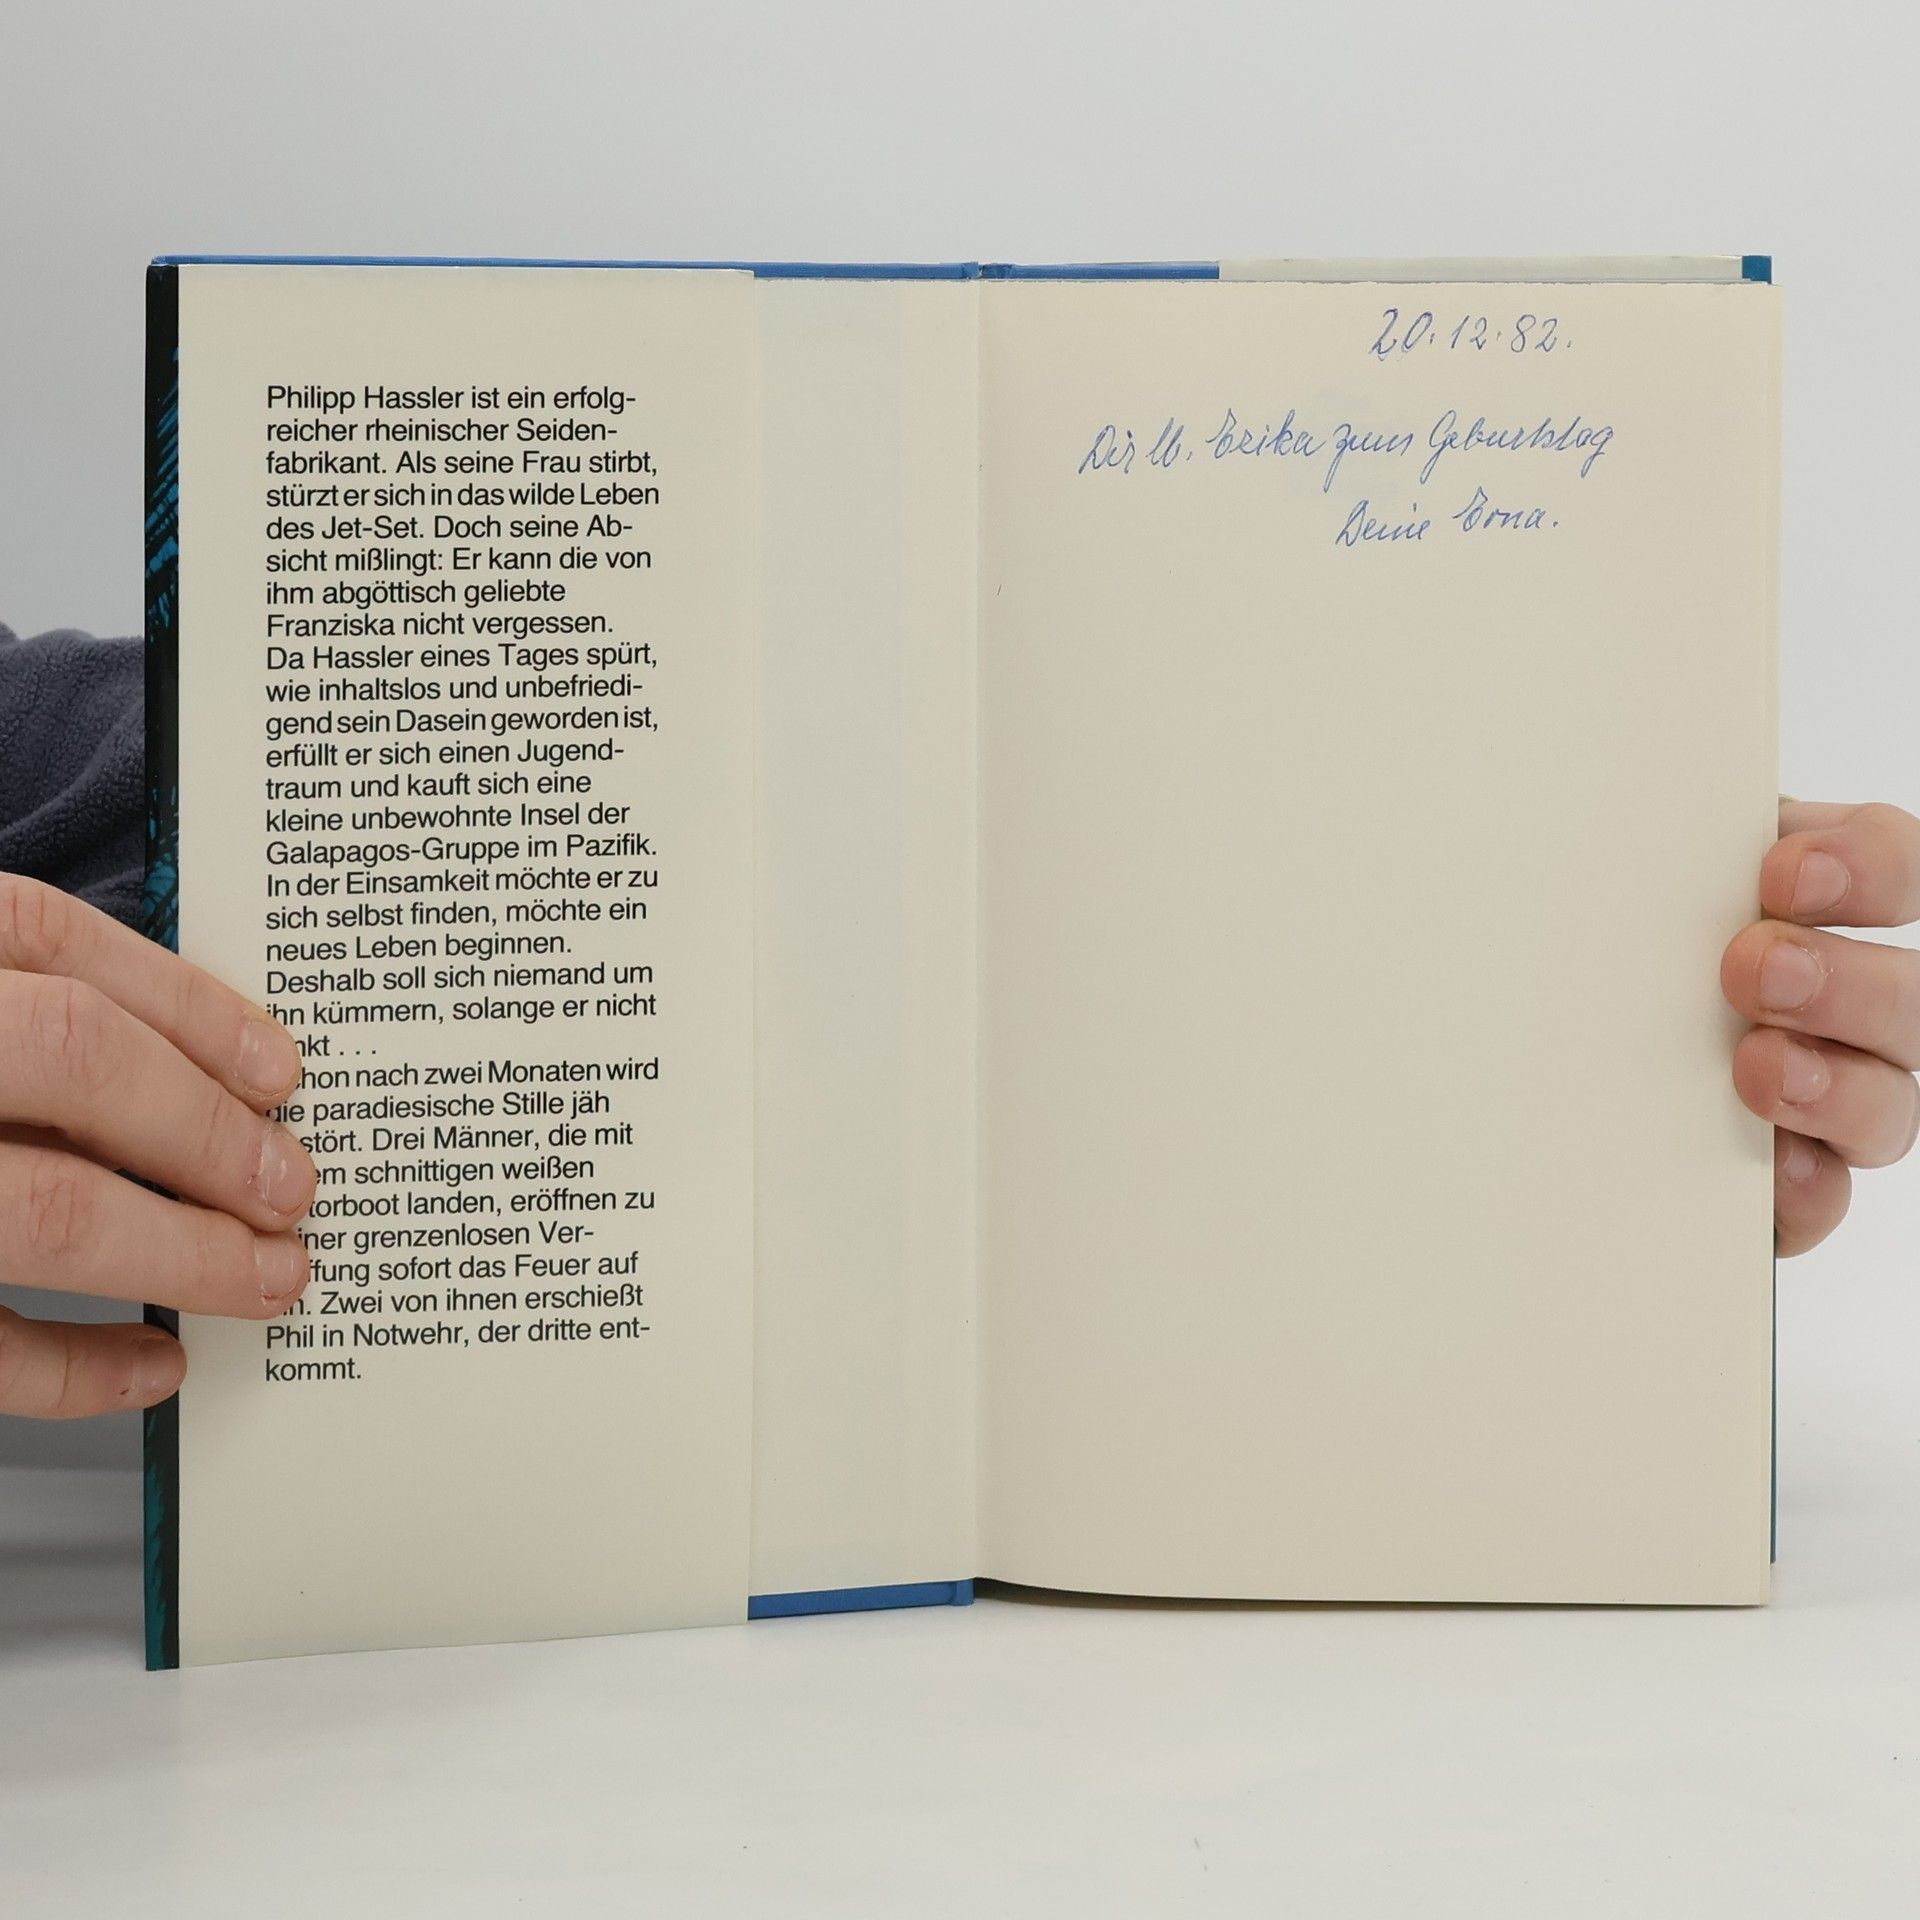 Philipp Hassler ist ein erfolg-
reicher rheinischer Seiden-
fabrikant. Als seine Frau stirbt,
stürzt er sich in das wilde Leben
des Jet-Set. Doch seine Ab-
sicht mißlingt: Er kann die von
ihm abgöttisch geliebte
Franziska nicht vergessen.
Da Hassler eines Tages spürt,
wie inhaltslos und unbefriedi-
gend sein Dasein geworden ist,
erfüllt er sich einen Jugend-
traum und kauft sich eine
kleine unbewohnte Insel der
Galapagos-Gruppe im Pazifik.
In der Einsamkeit möchte er zu
sich selbst finden, möchte ein
neues Leben beginnen.
Deshalb soll sich niemand um
ihn kümmern, solange er nicht
. . .
nach zwei Monaten wird
die paradiesische Stille jäh
Drei Männer, die mit
schnittigen weißen
landen, eröffnen zu
grenzenlosen Ver-
sofort das Feuer auf
Zwei von ihnen erschießt
Phil in Notwehr, der dritte ent-
kommt.
20.12.82.
Dir lb. Erika zum Geburtstag
Deine Erna.